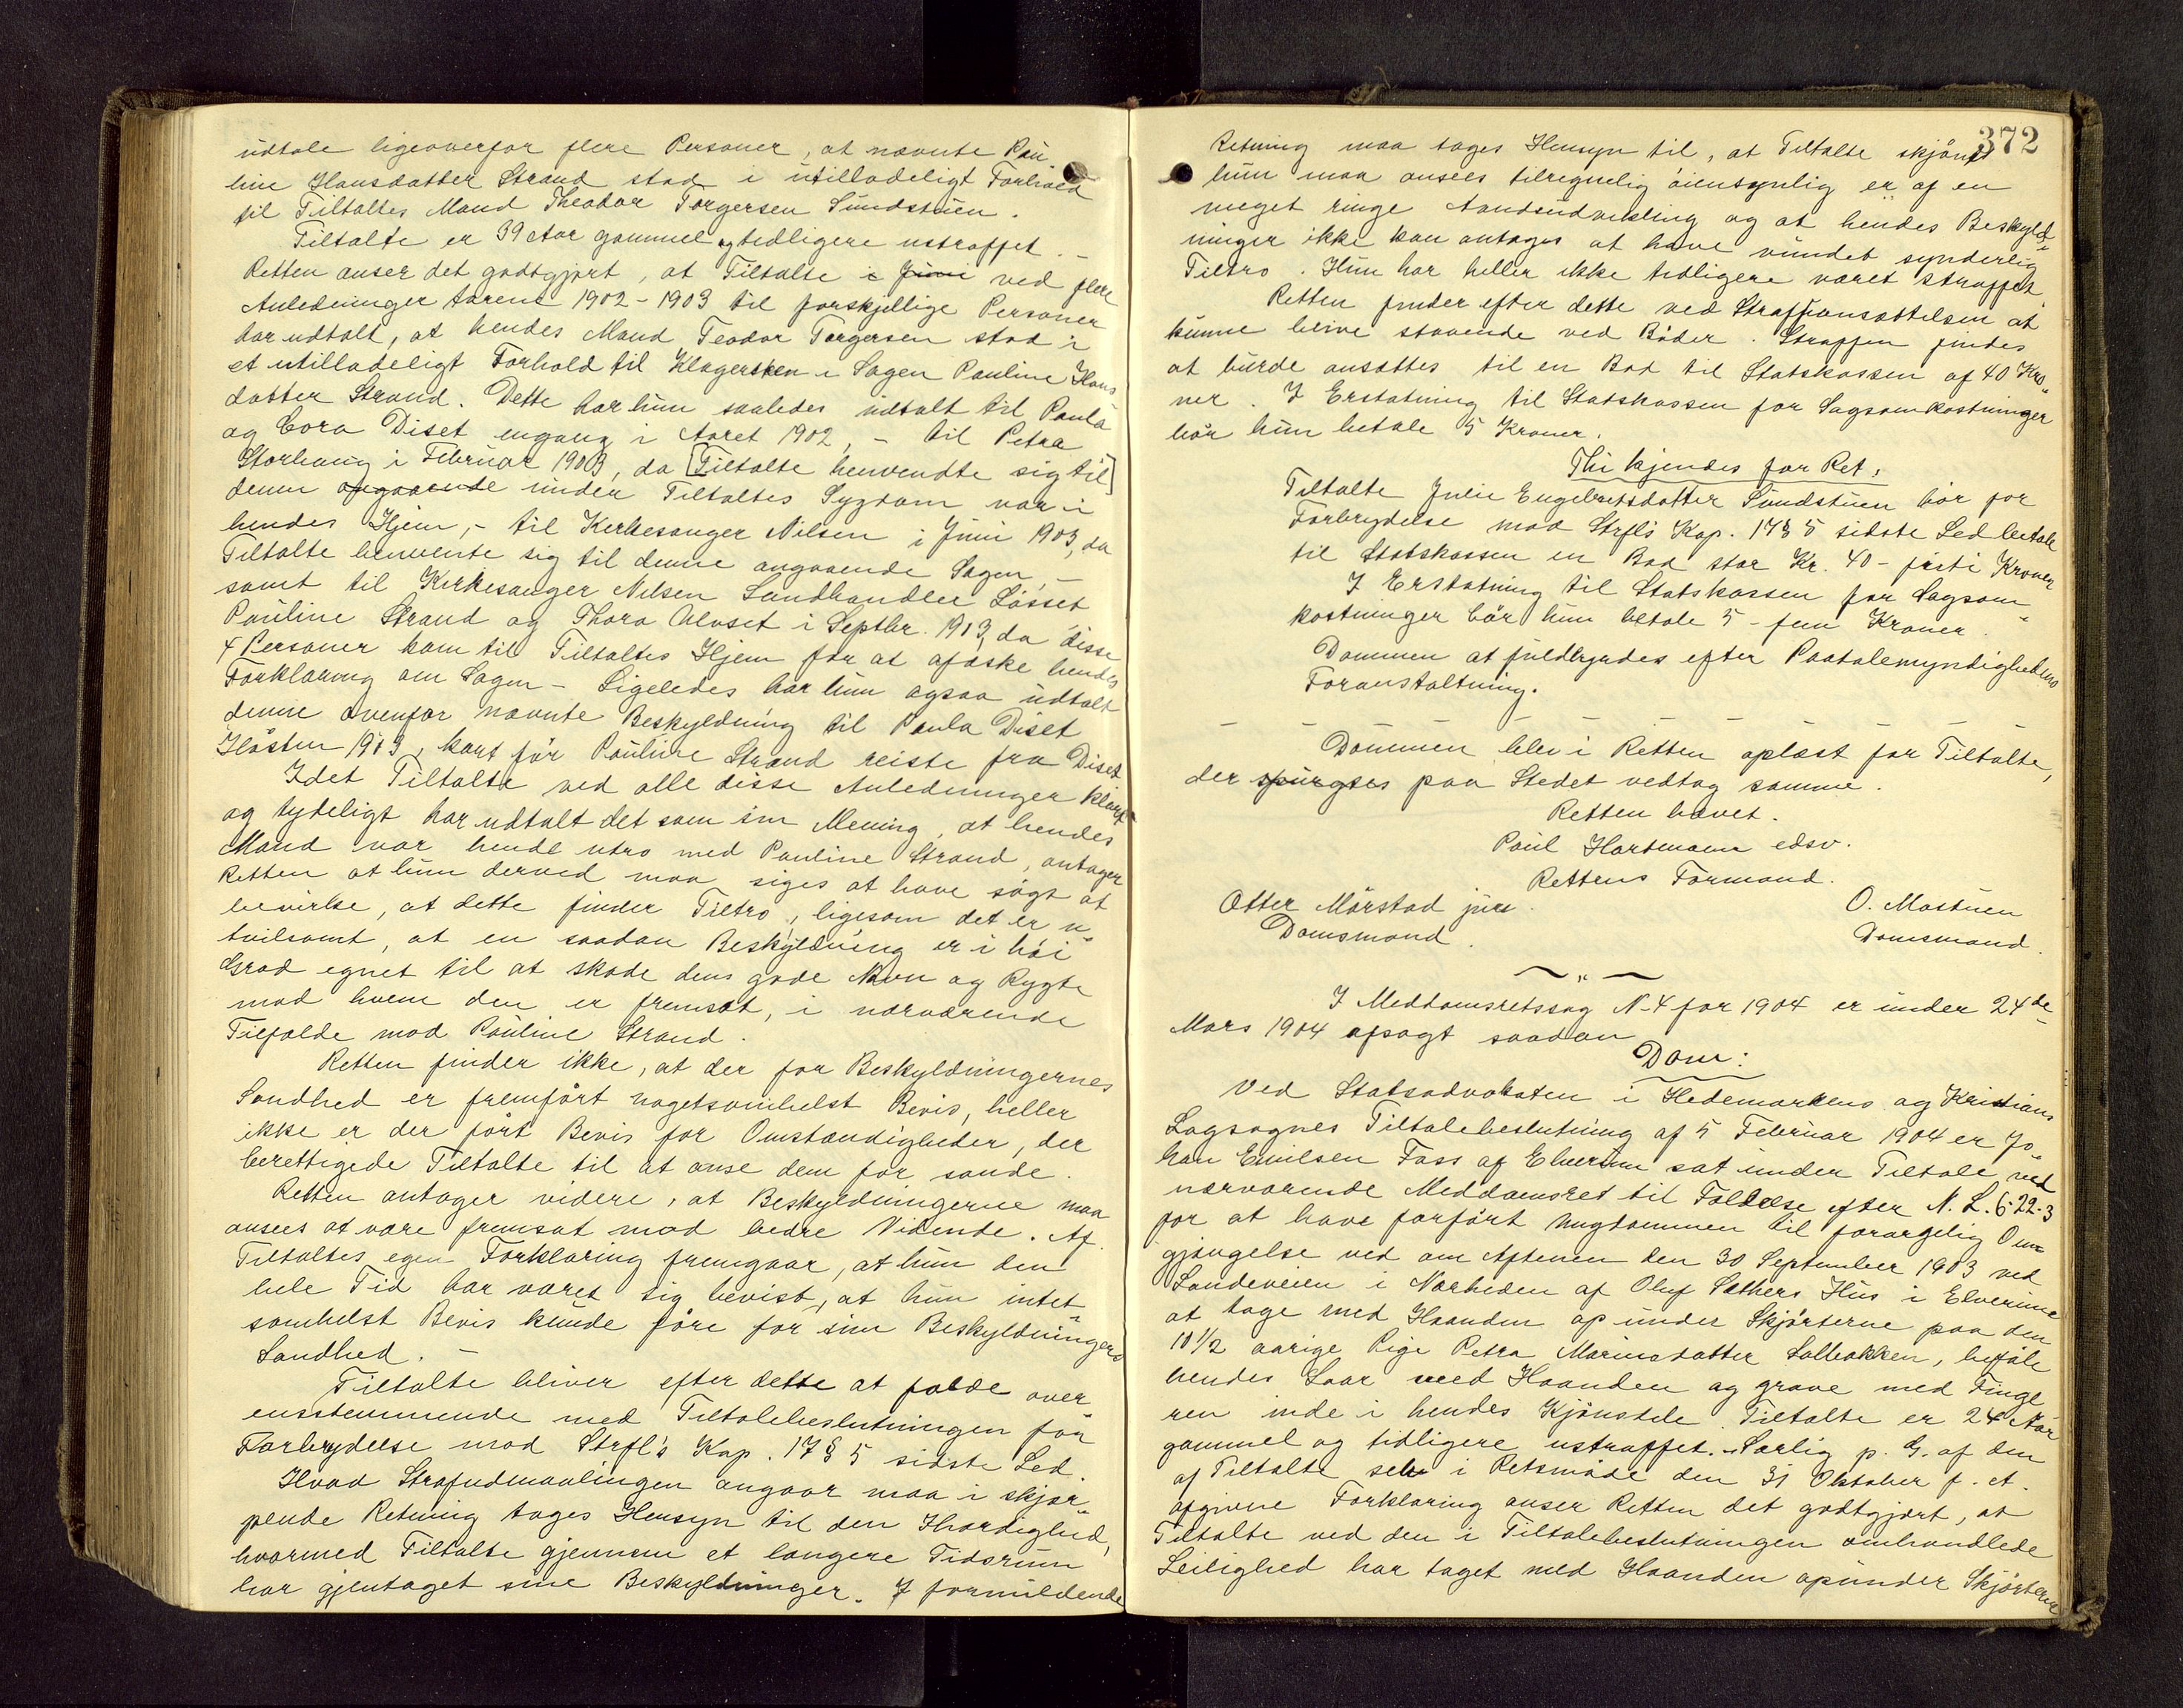 udtale ligeoverfor flere Personer, at nævnte Pau-
line Hansdatter Strand stod i utilladeligt Forhold
til Tiltaltes Mand Theodor Torgersen Sundstuen.
Tiltalte er 39 Aar gammel og tidligere ustraffet. –
Retten anser det godtgjort, at Tiltalte i Juni ved flere
Anledninger Aarene 1902–1903 til forskjellige Personer
har udtalt, at hendes Mand Teodor Torgersen stod i
et utilladeligt Forhold til Klagersken i Sagen Pauline Hans
datter Strand. Dette har hun saaledes udtalt til Paula
og Cora Diset engang i Aaret 1902, – til Petra
Storhaug i Februar 1903, da [Tiltalte henvendte sig til]
denne angaaende under Tiltaltes Sygdom var i
hendes Hjem, – til Kirkesanger Nilsen i Juni 1903, da
Tiltalte henvente sig til denne angaaende Sagen, –
samt til Kirkesanger Nilsen Landhandler Løsset
Pauline Strand og Thora Alvset i Septbr. 1903, da disse
4 Personer kom til Tiltaltes Hjem for at afæske hendes
Forklaring om Sagen – Ligeledes har hun ogsaa udtalt
denne ovenfor nævnte Beskyldning til Paula Diset
Høsten 1903, kort før Pauline Strand reiste fra Diset
Idet Tiltalte ved alle disse Anledninger klart
og tydeligt har udtalt det som sin Mening, at hendes
Mand var hende utro med Pauline Strand, antager
Retten at hun derved maa siges at have søgt at
bevirke, at dette finder Tiltro, ligesom det er u-
tvilsomt, at en saadan Beskyldning er i høi
Grad egnet til at skade dens gode Navn og Rygte
mod hvem den er fremsat, i nærværende
Tilfælde mod Pauline Strand.
Retten finder ikke, at der for Beskyldningernes
Sandhed er fremført nogetsomhelst Bevis, heller
ikke er der ført Bevis for Omstændigheder, der
berettigede Tiltalte til at anse dem for sande.
Retten antager videre, at Beskyldningerne maa
ansees at være fremsat mod bedre Vidende. Af
Tiltaltes egen Forklaring fremgaar, at hun den
hele Tid har været sig bevist, at hun intet
somhelst Bevis kunde føre for sin Beskyldnings
Sandhed. –
Tiltalte bliver efter dette at fælde over
ensstemmende med Tiltalebeslutningen for
Forbrydelse mod Strfl's Kap. 17 § 5 sidste Led.
Hvad Strafudmaalingen angaar maa i skjær-
pende Retning tages Hensyn til den Ihærdighed,
hvormed Tiltalte gjennem et længere Tidsrum
har gjentaget sine Beskyldninger. I formildende
372
Retning maa tages Hensyn til, at Tiltalte skjønt
hun maa ansees tilregnelig øiensynlig er af en
meget ringe Aandsudvikling og at hendes Beskyld-
ninger ikke kan antages at have vundet synderlig
Tiltro. Hun har heller ikke tidligere været straffet.
Retten finder efter dette ved Straffeansættelsen at
kunne blive staaende ved Bøder. Straffen findes
at burde ansættes til en Bod til Statskassen af 40 Kro-
ner. I Erstatning til Statskassen for Sagsomkostninger
bør hun betale 5 Kroner.
Thi kjendes for Ret,
Tiltalte Julie Engebretsdatter Sundstuen bør for
Forbrydelse mod Strfl's Kap. 17 § 5 sidste Led betale
til Statskassen en Bod stor Kr. 40 – firti Kroner
I Erstatning til Statskassen for Sagsom-
kostninger bør hun betale 5 – fem Kroner.
Dommen at fuldbyrdes efter Paatalemyndighedens
Foranstaltning.
Dommen blev i Retten oplæst for Tiltalte,
der spurgtes paa Stedet vedtog samme.
Retten hævet.
Paul Hartmann edsv.
Rettens Formand.
Otter Mørstad jun.
O. Mostuen
Domsmand.
Domsmand.
I Meddomsretssag N. 4 for 1904 er under 24de
Mars 1904 afsagt saadan
Dom:
Ved Statsadvokaten i Hedemarkens og Kristians
Lagsognes Tiltalebeslutning af 5 Februar 1904 er Jo-
han Emilsen Fass af Elverum sat under Tiltale ved
nærværende Meddomsret til Fældelse efter N. L. 6-22-3
for at have forført Ungdommen til forargelig Om
gjængelse ved om Aftenen den 30 September 1903 ved
Landeveien i Nærheden af Oluf Sæthers Hus i Elverum
at tage med Haanden op under Skjørterne paa den
10 1/2 aarige Pige Petra Marinsdatter Solbakken, beføle
hendes Laar med Haanden og grave med Finge
ren inde i hendes Kjønsdele. Tiltalte er 24 Aar
gammel og tidligere ustraffet. – Særlig p. G. af den
af Tiltalte selv i Retsmøde den 31 Oktober f. A.
afgivne Forklaring anser Retten det godtgjort, at
Tiltalte ved den i Tiltalebeslutningen omhandlede
Leilighed har taget med Haanden opunder Skjørterne